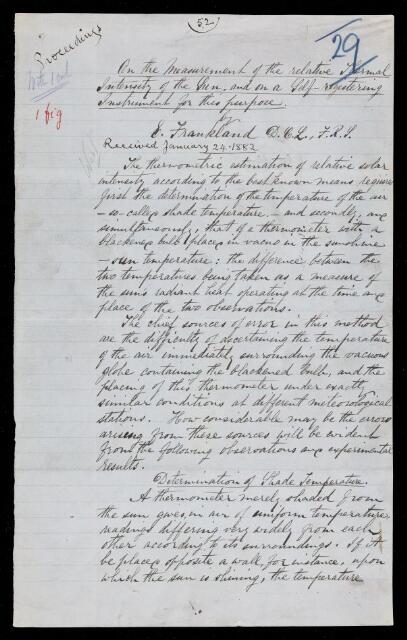 (52)
29
Proceedings
1 fig
On the Measurement of the relative Thermal
Intensity of the Sun, and on a Self-registering
Instrument for this purpose
by
E. Frankland D.C.L., F.R.S.
Received January 24. 1882
The thermometric estimation of relative solar
intensity according to the best known means requires
first the determination of the temperature of the air
- so-called shade temperature - and secondly, and
simultaneously, that of a thermometer with a
blackened bulb placed in vacuo in the sunshine
- sun temperature: the difference between the
two temperatures being taken as a measure of
the sun's radiant heat operating at the time and
place of the two observations.
The chief sources of error in this method
are the difficulty of ascertaining the temperature
of the air immediately surrounding the vacuous
globe containing the blackened bulb, and the
placing of this thermometer under exactly
similar conditions at different meteorological
stations. How considerable may be the errors
arising from these sources will be evident
from the following observations and experimental
results.
Determination of Shade Temperature.
A thermometer merely shaded from
the sun gives, in air of uniform temperature
readings differing very widely from each
other according to its surroundings. If it
be placed opposite a wall, for instance, upon
which the sun is shining, the temperature